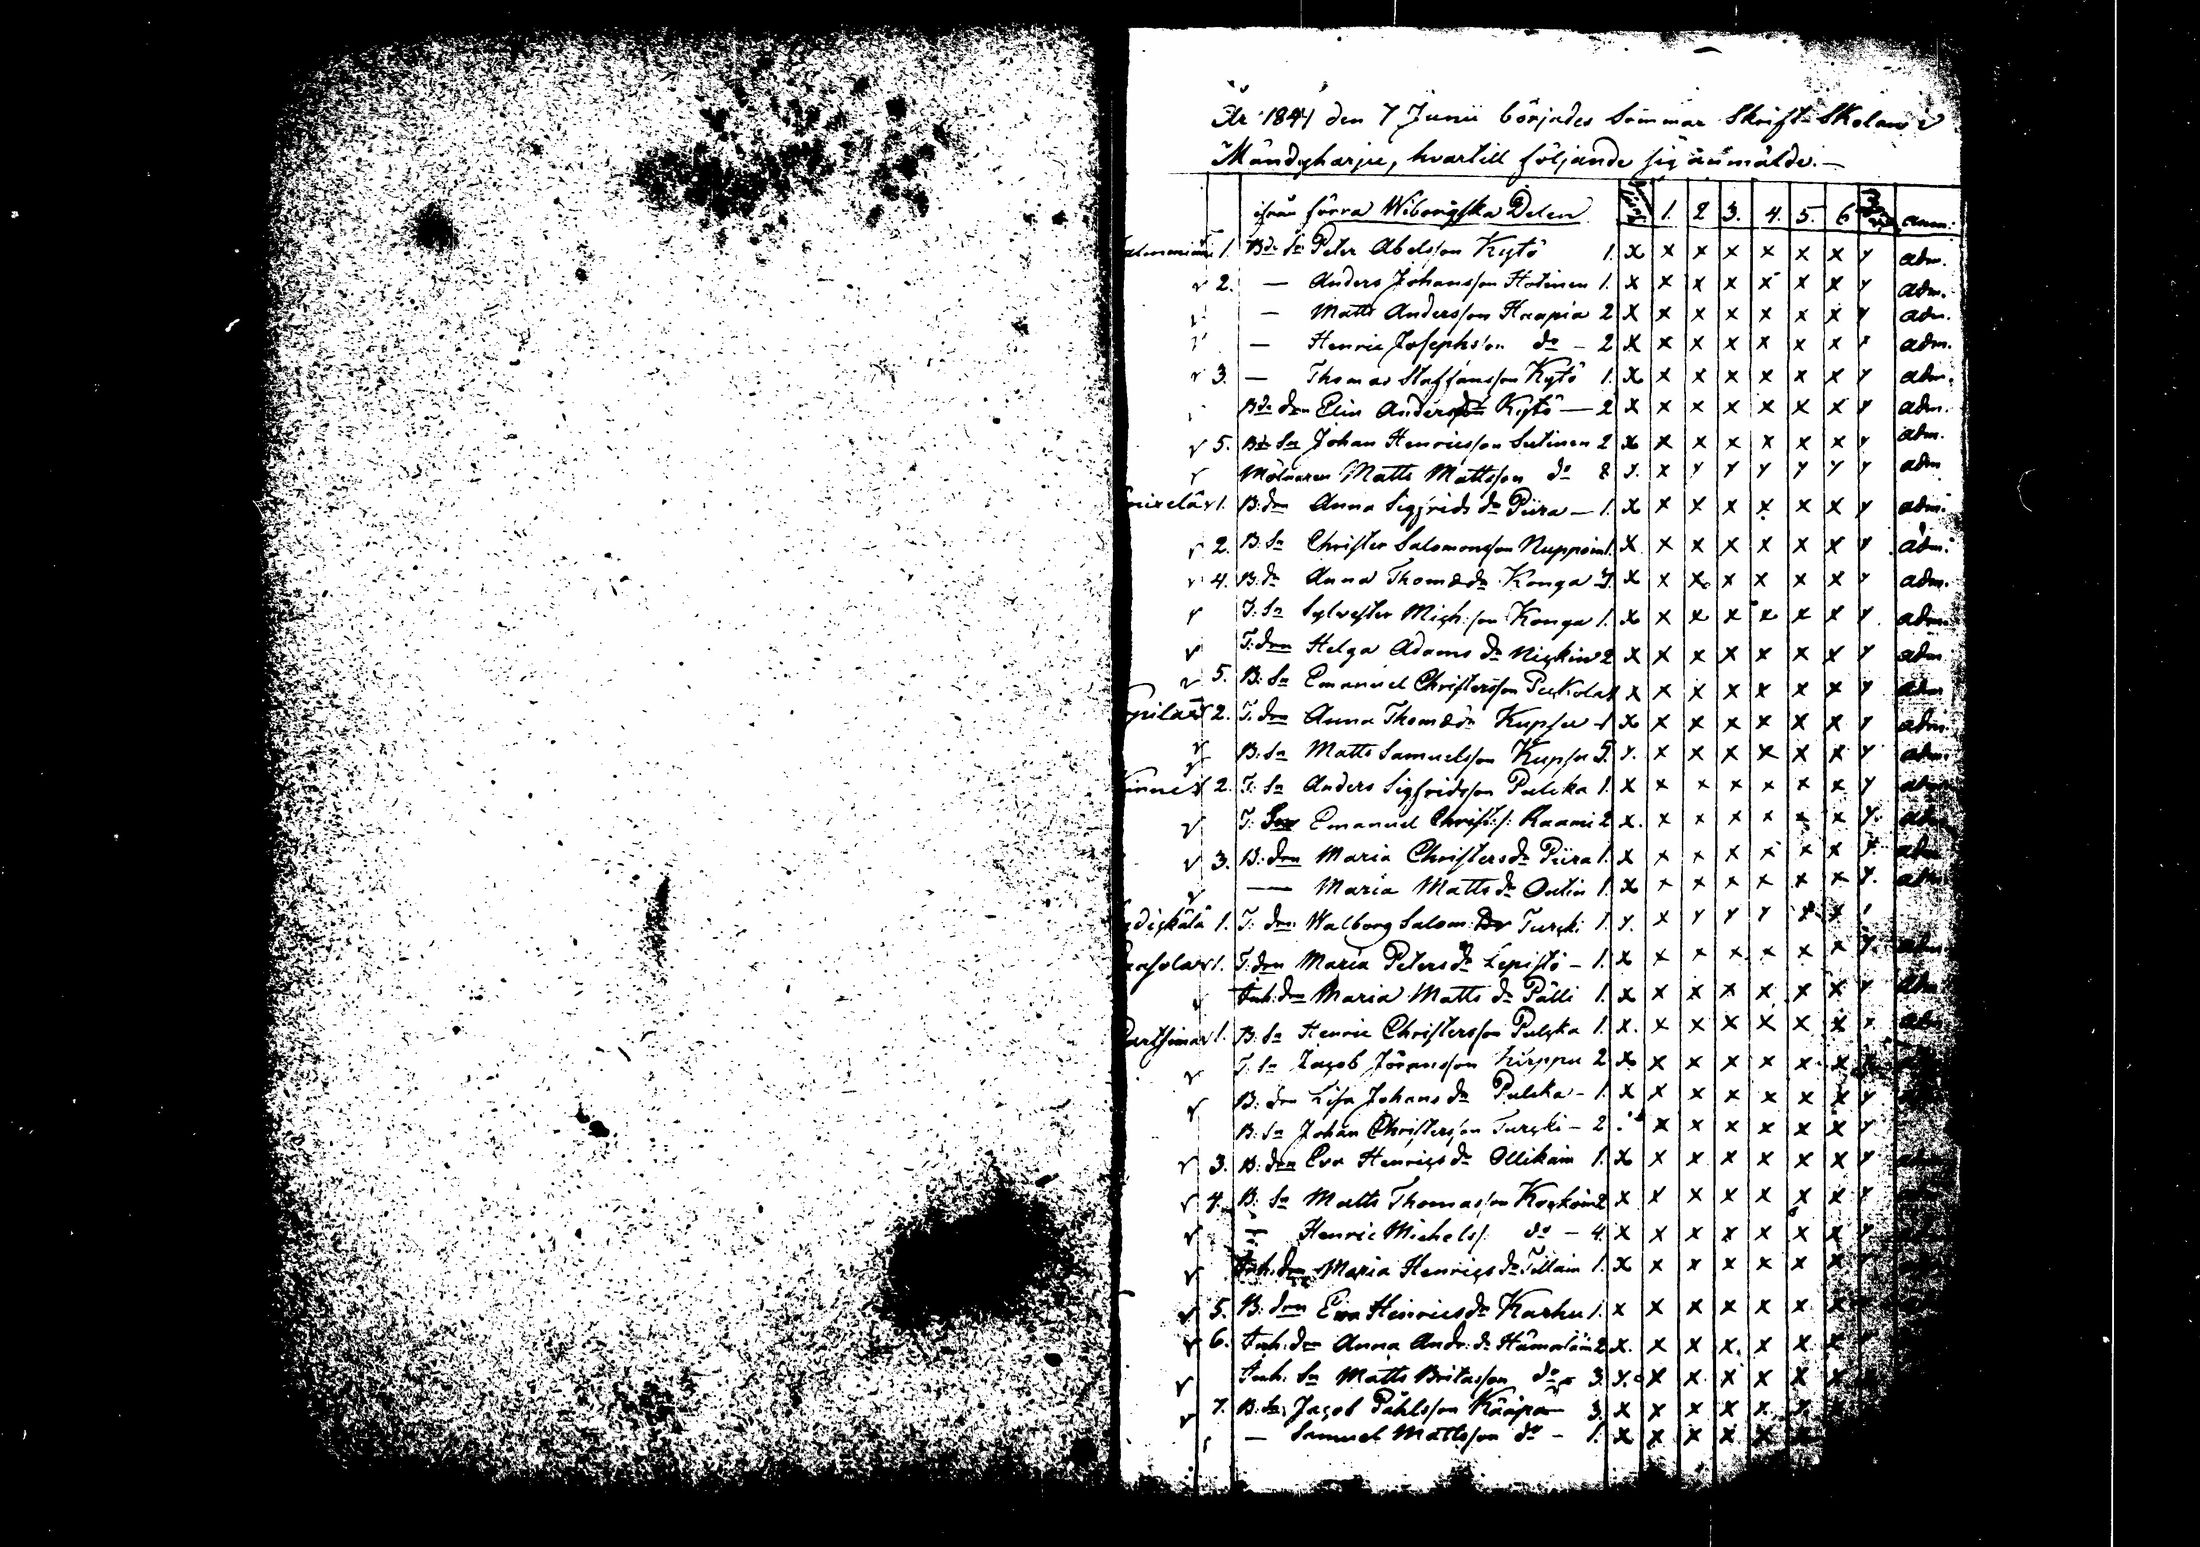 År 1841 den 7 Junii börjades Sommar Skrift-Skolan i
Mändyharju, hvartill följande sig anmälde.—
ifrån förra Wiborgska Delen 1. 2 3. 4. 5. 6 anm:
1. Bde Sn Peter Abelsson Kytö 1. x x x x x x x y adm.
v 2. — Anders Johansson Hotinen 1. x x x x x x x y adm.
v — Matts Andersson Haapia 2 x x x x x x x y adm.
v — Henric Josephsson do - 2 x x x x x x x x adm.
v 3. — Thomas Staffansson Kytö 1. x x x x x x x y adm.
Bde dn Elin Anders dr Kytö — 2 x x x x x x x y adm.
v 5. Bde Sn Johan Henricsson Sutinen 2 x x x x x x x y adm.
v Mölnaren Matts Mattsson do 8 y. x y y y y y y adm
v 1. B. don Anna Sigfrids dr Piira — 1. x x x x x x x y adm.
v 2. B. Sn Christer Salomonsson Nuppoin 1. x x x x x x x y adm.
v 4. B. dr Anna Thomæ dr Konga x x x x x x x y adm.
v T. Sn Sylvester Mich:son Konga 1. x x x x x x x y adm.
v T. don Helga Adams dr 2 x x x x x x x y adm
v 5. B. Sn Emanuel Christersson Pukola x x x x x x x y adm
2. T. don Anna Thomæ dr Kupsu - 1 x x x x x x x y adm.
v B. Sn Matts Samuelsson Kupsu 5. y. x x x x x x y adm.
2. T. Sn Anders Sigfridsson Pulcka 1. x x x x x x x y adm
v T. Son Emanuel Christ:s: Raami 2 x. x x x x x x y. adm
v 3. B. don Maria Christers dr Piira 1. x x x x x x x y. adm
v — Maria Matts dr Outin 1. x x x x x x x y. adm
1. T. don Walborg Salom: Dr Turcki 1. y. x y y y x x
v 1. T. don Maria Peters dr Lepistö - 1. x x x x x x x y. adm
v Inh. don Maria Matts dr Pälli 1. x x x x x x x y adm
v 1. B. Sn Henric Christersson Pulcka 1. x. x x x x x x x adm
v T. Sn Jacob Jöransson Kirppu 2 x x x x x x x
v B. don Lisa Johans dr Pulcka - 1. x x x x x x x y
B. Sn Johan Christersson Turcki - 2 x x x x x x y
v 3. B. don Eva Henrics dr Ollikain 1. x x x x x x x y
v 4. B. Sn Matts Thomasson Kockoin 2 x x x x x x x y
v — Henric Michels/: do - 4. x x x x x x x y
v Inh. don Maria Henrics dr Tillain 1. x x x x x x x
v 5. B. don Eva Henrics dr Karhu 1. x x x x x x x
v 6. Inh. don Anna And: dr Hämäläin 2 x. x x x x x x
v Inh. Sn Matts Britasson do 3. y. x x x x x x
v 7. B. Sn Jacob Påhlsson Kääpä 3. x x x x x x
— Samuel Mattsson do - 1. x x x x x